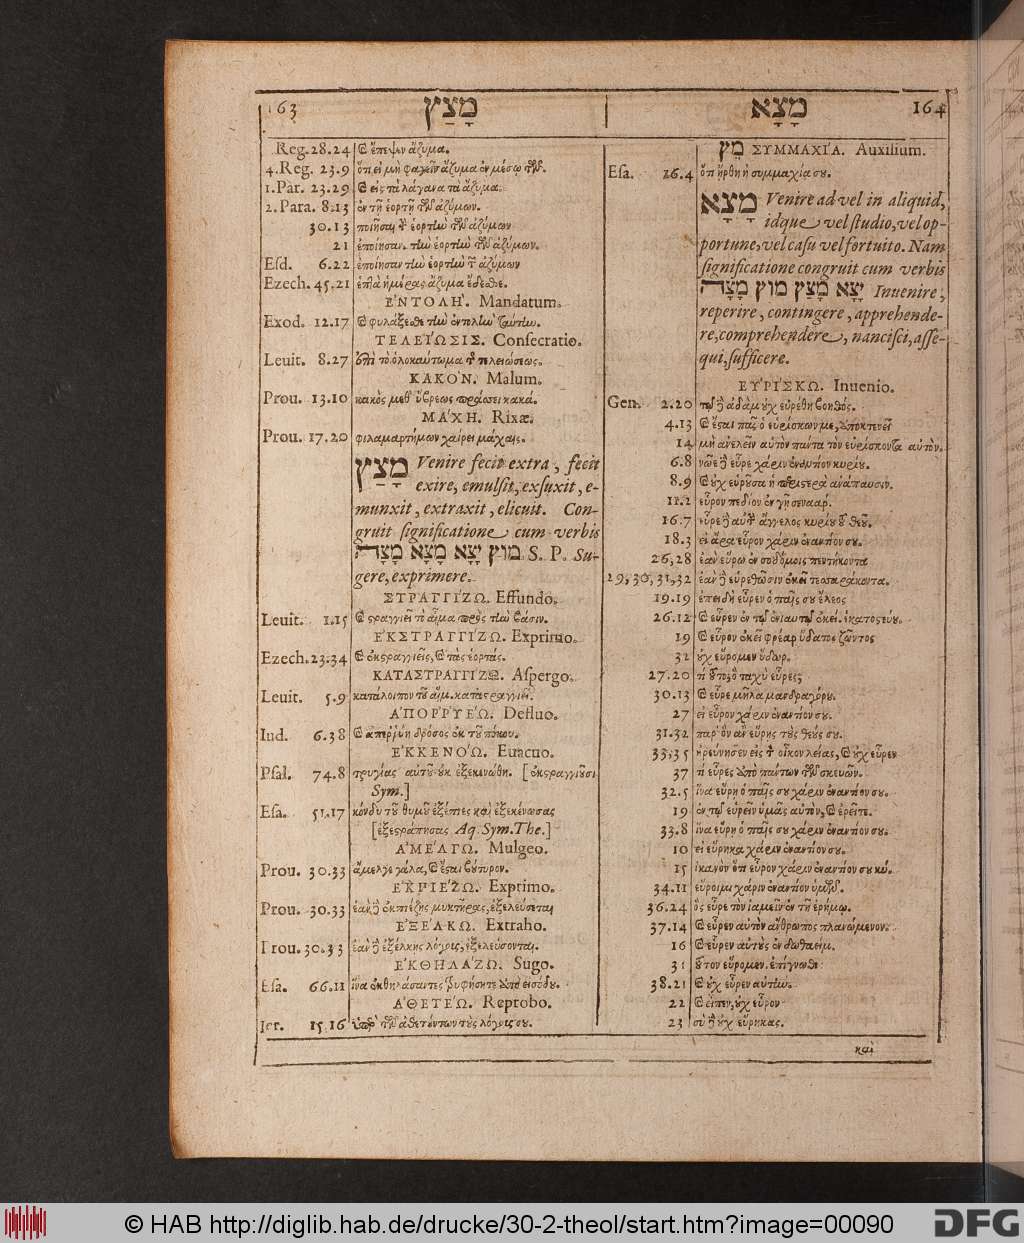 163 מָצַץ
Reg. 28.24 ἔπεψεν ἄζυμα.
4. Reg. 23.9 ὅτι εἰ μὴ φαγεῖν ἄζυμα ἐν μέσῳ τῶν.
1. Par. 23.29 εἰς τὰ λάγανα τὰ ἄζυμα.
2. Para. 8.13 ἐν τῇ ἑορτῇ τῶν ἀζύμων.
30.13 ποιῆσαι τὴν ἑορτὴν τῶν ἀζύμων
21 ἐποίησαν τὴν ἑορτὴν τῶν ἀζύμων.
Esd. 6.22 ἐποίησαν τὴν ἑορτὴν τῶν ἀζύμων
Ezech. 45.21 ἑπτὰ ἡμέρας ἄζυμα ἔδεσθε.
ΕΝΤΟΛΗ. Mandatum.
Exod. 12.17 φυλάξεσθε τὴν ἐντολὴν ταύτην.
ΤΕΛΕΙΩΣΙΣ. Consecratio.
Leuit. 8.27 ἐπὶ τὸ ὁλοκαύτωμα τῆς τελειώσεως.
ΚΑΚΟΝ. Malum.
Prou. 13.10 κακὸς μεθ' ὕβρεως πράσσει κακά.
ΜΑΧΗ. Rixæ.
Prou. 17.20 φιλαμαρτήμων χαίρει μάχαις.
מָצַץ Venire fecit extra, fecit
exire, emulsit, exsuxit, e-
munxit, extraxit, elicuit. Con-
gruit significatione cum verbis
מוץ יָצָא מָצָא מָצָה S. P. Su-
gere, exprimere.
ΣΤΡΑΓΓΙΖΩ. Effundo.
Leuit. 1.15 στραγγιεῖ τὸ αἷμα πρὸς τὴν βάσιν.
ΕΚΣΤΡΑΓΓΙΖΩ. Exprimo.
Ezech. 23.34 ἐκστραγγιεῖς, τὰς ἑορτάς.
ΚΑΤΑΣΤΡΑΓΓΙΖΩ. Aspergo.
Leuit. 5.9 κατάλοιπον τοῦ αἵμ. καταστραγγιεῖ.
ΑΠΟΡΡΥΕΩ. Defluo.
Iud. 6.38 ἀπερρύη δρόσος ἐκ τοῦ πόκου.
ΕΚΚΕΝΟΩ. Euacuo.
Psal. 74.8 τρυγίας αὐτοῦ οὐκ ἐξεκενώθη. [ἐκστραγγιοῦσι
Sym.]
Esa. 51.17 κόνδυ τοῦ θυμοῦ ἐξέπιες καὶ ἐξεκένωσας
[ἐξεστράγγισας Aq. Sym. The.]
ΑΜΕΛΓΩ. Mulgeo.
Prou. 30.33 ἄμελγε γάλα, ἔσται βούτυρον.
ΕΚΠΙΕΖΩ. Exprimo.
Prou. 30.33 ἐὰν δὲ ἐκπιέζῃς μυκτῆρας, ἐξελεύσεται
ΕΞΕΛΚΩ. Extraho.
Prou. 30.33 ἐὰν δὲ ἐξέλκῃς λόγους, ἐξελεύσονται.
ΕΚΘΗΛΑΖΩ. Sugo.
Esa. 66.11 ἵνα ἐκθηλάσαντες τρυφήσητε ἀπὸ εἰσόδου.
ΑΘΕΤΕΩ. Reprobo.
Jer. 15.16 ὑπὸ τῶν ἀθετούντων τοὺς λόγους σου.
מָצָא 164
מֵץ ΣΥΜΜΑΧΙΑ. Auxilium.
Esa. 16.4 ὅτι ἤρθη ἡ συμμαχία σου.
מָצָא Venire ad vel in aliquid,
idque vel studio, vel op-
portune, vel casu vel fortuito. Nam
significatione congruit cum verbis
יָצָא מָצַץ מוץ מָצָה Inuenire,
reperire, contingere, apprehende-
re, comprehendere, nancisci, asse-
qui, sufficere.
ΕΥΡΙΣΚΩ. Inuenio.
Gen. 2.20 τῷ δὲ ἀδὰμ οὐχ εὑρέθη βοηθός.
4.13 ἔσται πᾶς ὁ εὑρίσκων με, ἀποκτενεῖ
14 μὴ ἀνελεῖν αὐτὸν πάντα τὸν εὑρίσκοντα αὐτόν.
6.8 νῶε δὲ εὗρε χάριν ἐνώπιον κυρίου.
8.9 οὐχ εὑροῦσα ἡ περιστερὰ ἀνάπαυσιν.
11.2 εὗρον πεδίον ἐν γῇ σενααρ.
16.7 εὗρε δὲ αὐτὴν ἄγγελος κυρίου τοῦ θεοῦ.
18.3 εἰ ἄρα εὗρον χάριν ἐναντίον σου.
26,28 ἐὰν εὕρω ἐν σοδόμοις πεντήκοντα
29,30,31,32 ἐὰν δὲ εὑρεθῶσιν ἐκεῖ τεσσαράκοντα.
19.19 ἐπειδὴ εὗρεν ὁ παῖς σου ἔλεος
26.12 εὗρεν ἐν τῷ ἐνιαυτῷ ἐκεί. ἑκατοστεύου.
19 εὗρον ἐκεῖ φρέαρ ὕδατος ζῶντος
32 οὐχ εὕρομεν ὕδωρ.
27.20 τί τοῦτο, ὃ ταχὺ εὗρες;
30.13 εὗρε μῆλα μανδραγόρου.
27 εἰ εὗρον χάριν ἐναντίον σου.
31.32 παρ' ὃν ἂν εὕρῃς τοὺς θεούς σου.
33,35 ἠρεύνησεν εἰς τὸν οἶκον λείας, οὐχ εὗρεν
37 τί εὗρες ἀπὸ πάντων τῶν σκευῶν.
32.5 ἵνα εὕρῃ ὁ παῖς σου χάριν ἐναντίον σου.
19 ἐν τῷ εὑρεῖν ὑμᾶς αὐτὸν, ἐρεῖτε.
33.8 ἵνα εὕρῃ ὁ παῖς σου χάριν ἐναντίον σου.
10 εἰ εὕρηκα χάριν ἐναντίον σου.
15 ἱκανὸν ὅτι εὗρον χάριν ἐναντίον σου κύ.
34.11 εὕροιμι χάριν ἐναντίον ὑμῶν.
36.24 ὃς εὗρε τὸν ἰαμεὶν ἐν τῇ ἐρήμῳ.
37.14 εὗρεν αὐτὸν ἄνθρωπος πλανώμενον.
16 εὗρεν αὐτοὺς ἐν δωθαείμ.
31 τοῦτον εὕρομεν, ἐπίγνωθι
38.21 οὐχ εὗρεν αὐτήν.
22 εἶπεν, οὐχ εὗρον
23 σὺ δὲ οὐχ εὕρηκας.
καὶ
© HAB http://diglib.hab.de/drucke/30-2-theol/start.htm?image=00090
DFG